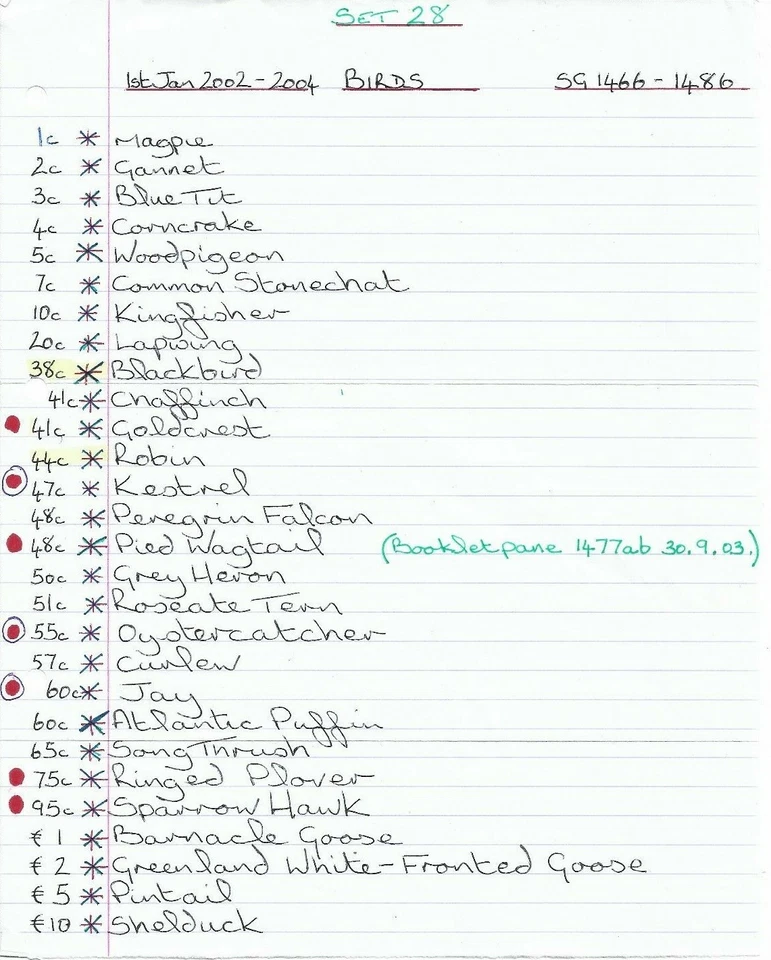 SET 28
1st Jan 2002-2004 BIRDS SG 1466-1486
1c * Magpie
2c * Gannet
3c * Blue Tit
4c * Corncrake
5c * Woodpigeon
7c * Common Stonechat
10c * Kingfisher
20c * Lapwing
38c * Blackbird
41c * Chaffinch
41c * Goldcrest
44c * Robin
47c * Kestrel
48c * Peregrin Falcon
48c * Pied Wagtail (Booklet pane 1477ab 30.9.03.)
50c * Grey Heron
51c * Roseate Tern
55c * Oystercatcher
57c * Curlew
60c * Jay
60c * Atlantic Puffin
65c * Song Thrush
75c * Ringed Plover
95c * Sparrow Hawk
€ 1 * Barnacle Goose
€ 2 * Greenland White-Fronted Goose
€ 5 * Pintail
€ 10 * Shelduck